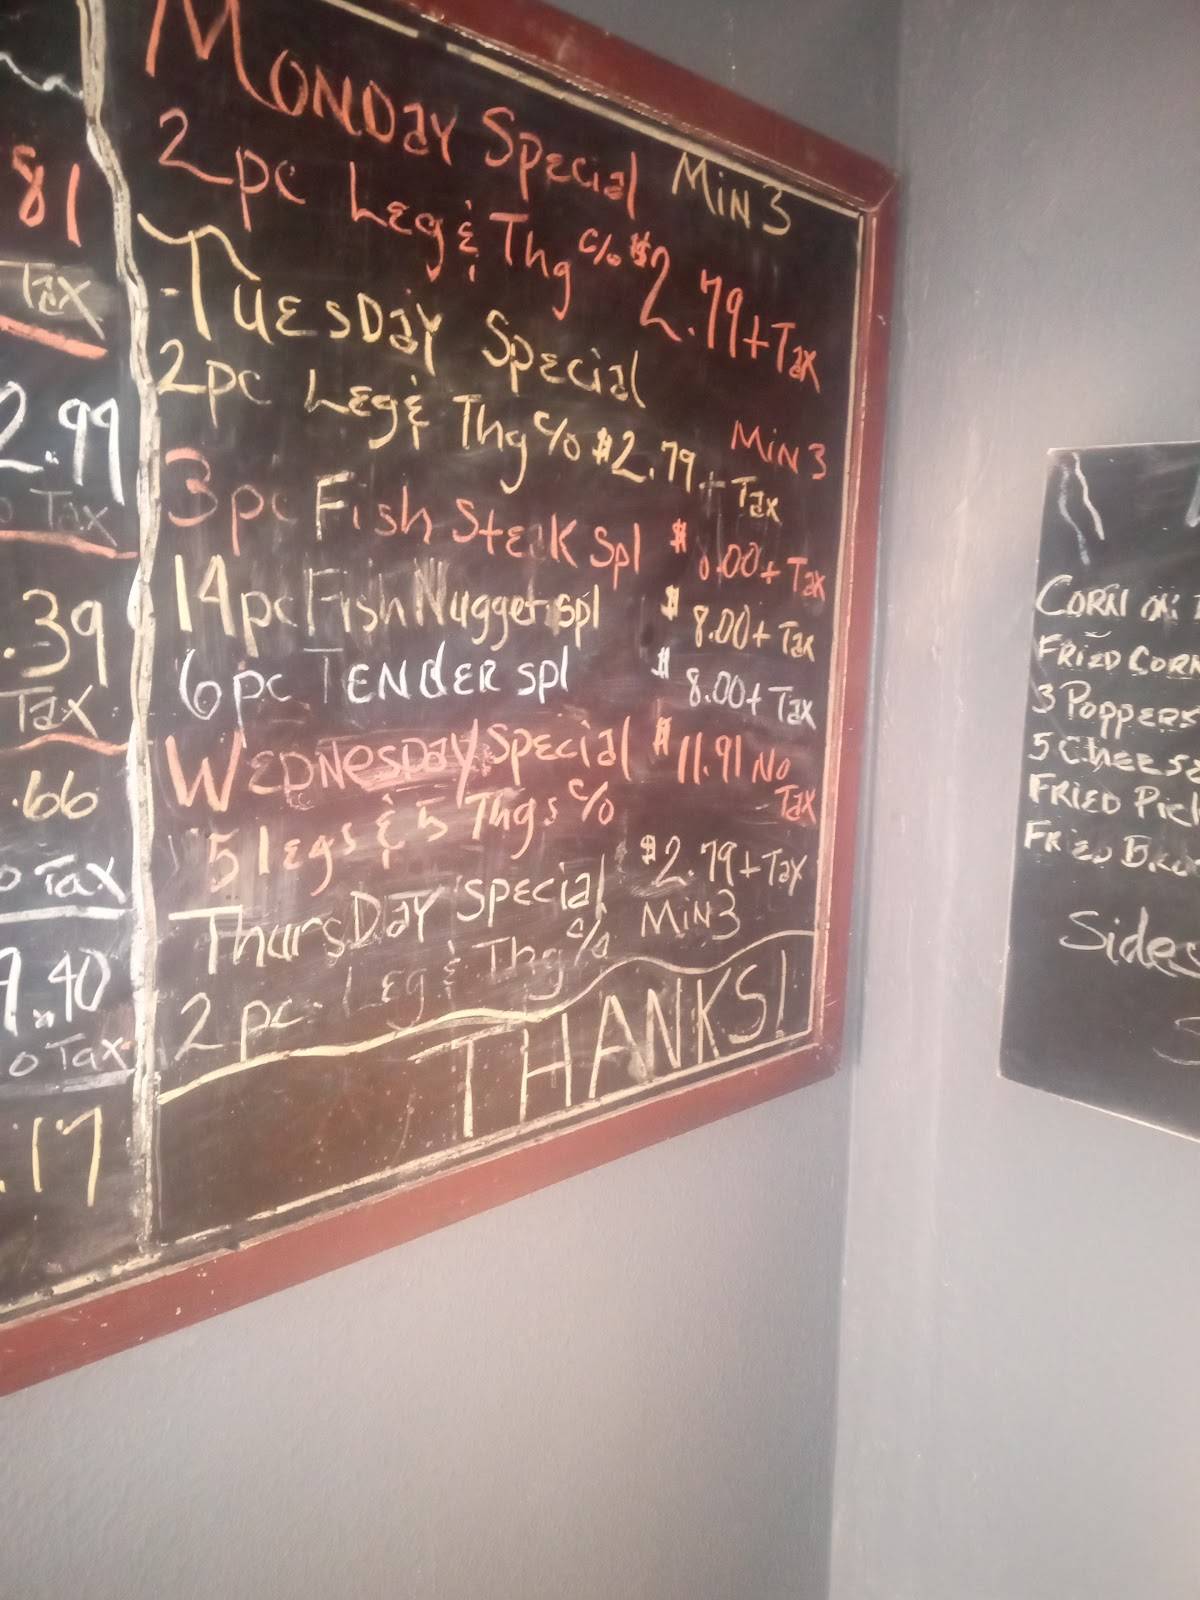 81
Tax
2.99
o Tax
.39
Tax
.66
o Tax
9.40
o Tax
.17
Monday Special Min 3
2pc Leg & Thg c/o $2.79 + Tax
Tuesday Special
2pc Leg & Thg c/o $2.79 + Tax
Min 3
3pc Fish Steak Spl $8.00 + Tax
14pc Fish Nugget spl $8.00 + Tax
6pc Tender spl $8.00 + Tax
Wednesday Special $11.91 No Tax
5 legs & 5 Thgs c/o
Thursday Special $2.79 + Tax
2pc Leg & Thg c/o Min 3
THANKS!
Corn on
Fried Corn
3 Poppers
5 Cheese
Fried Pick
Fried
Sides